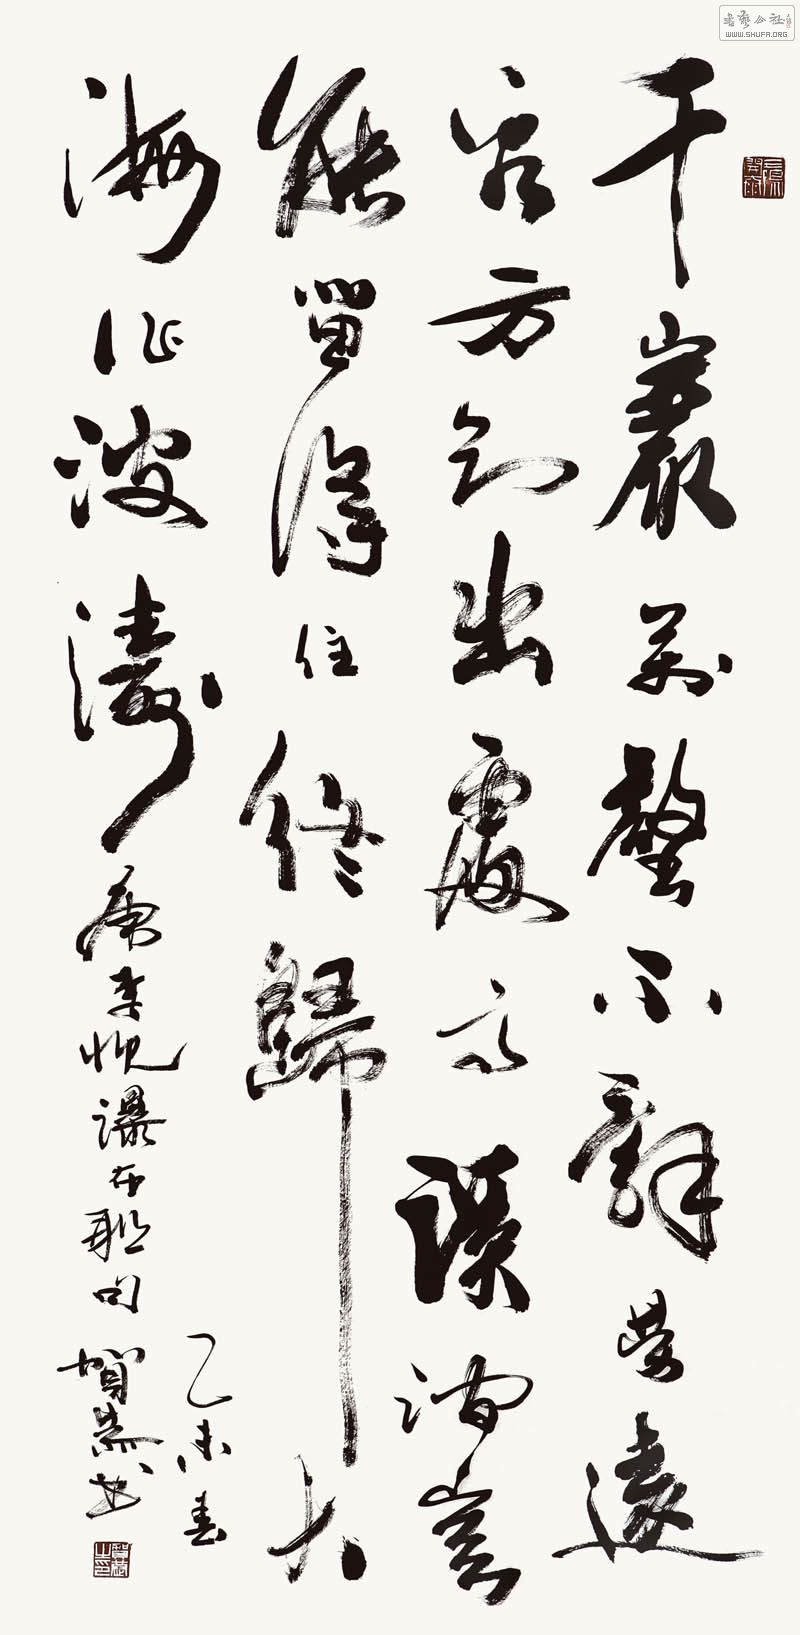 千巖萬壑不辭勞遠
看方知出處高溪澗豈
能留得住終歸大
海作波濤 唐李忱瀑布聯句
乙未春
賀 書
書藝公社
WWW.SHUFA.ORG